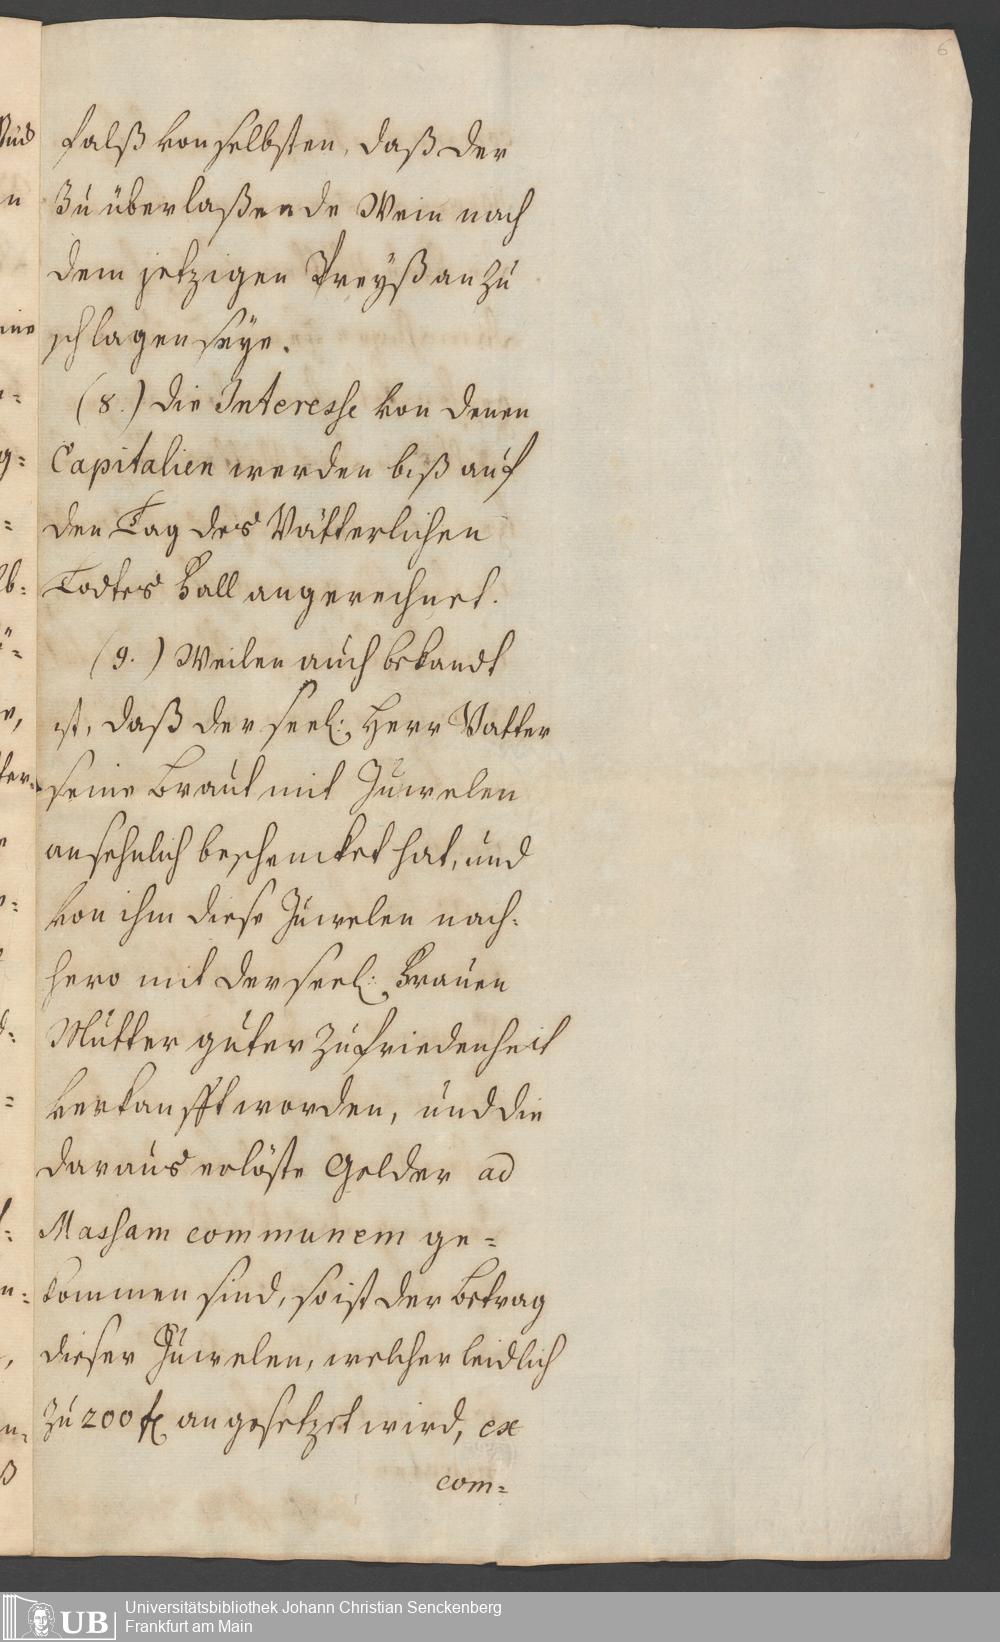 6
falß von selbsten, daß der
Zu überlaßende Wein nach
dem jetzigen Preyß anzu
schlagen seye.
(8.) Die Interesse von denen
Capitalien werden biß auf
den Tag des Vätterlichen
Todtes Fall angerechnet.
(9.) Weilen auch bekandt
ist, daß der seel: Herr Vatter
seine Braut mit Juwelen
ansehnlich beschencket hat, und
von ihm diese Juwelen nach-
hero mit der seel: Frauen
Mutter guter Zufriedenheit
verkaufft worden, und die
daraus erlöste Gelder ad
Massam communem ge=
kommen sind, so ist der Betrag
dieser Juwelen, welcher leidlich
Zu 200 f. angesetzet wird, ex
com=
UB Universitätsbibliothek Johann Christian Senckenberg
Frankfurt am Main